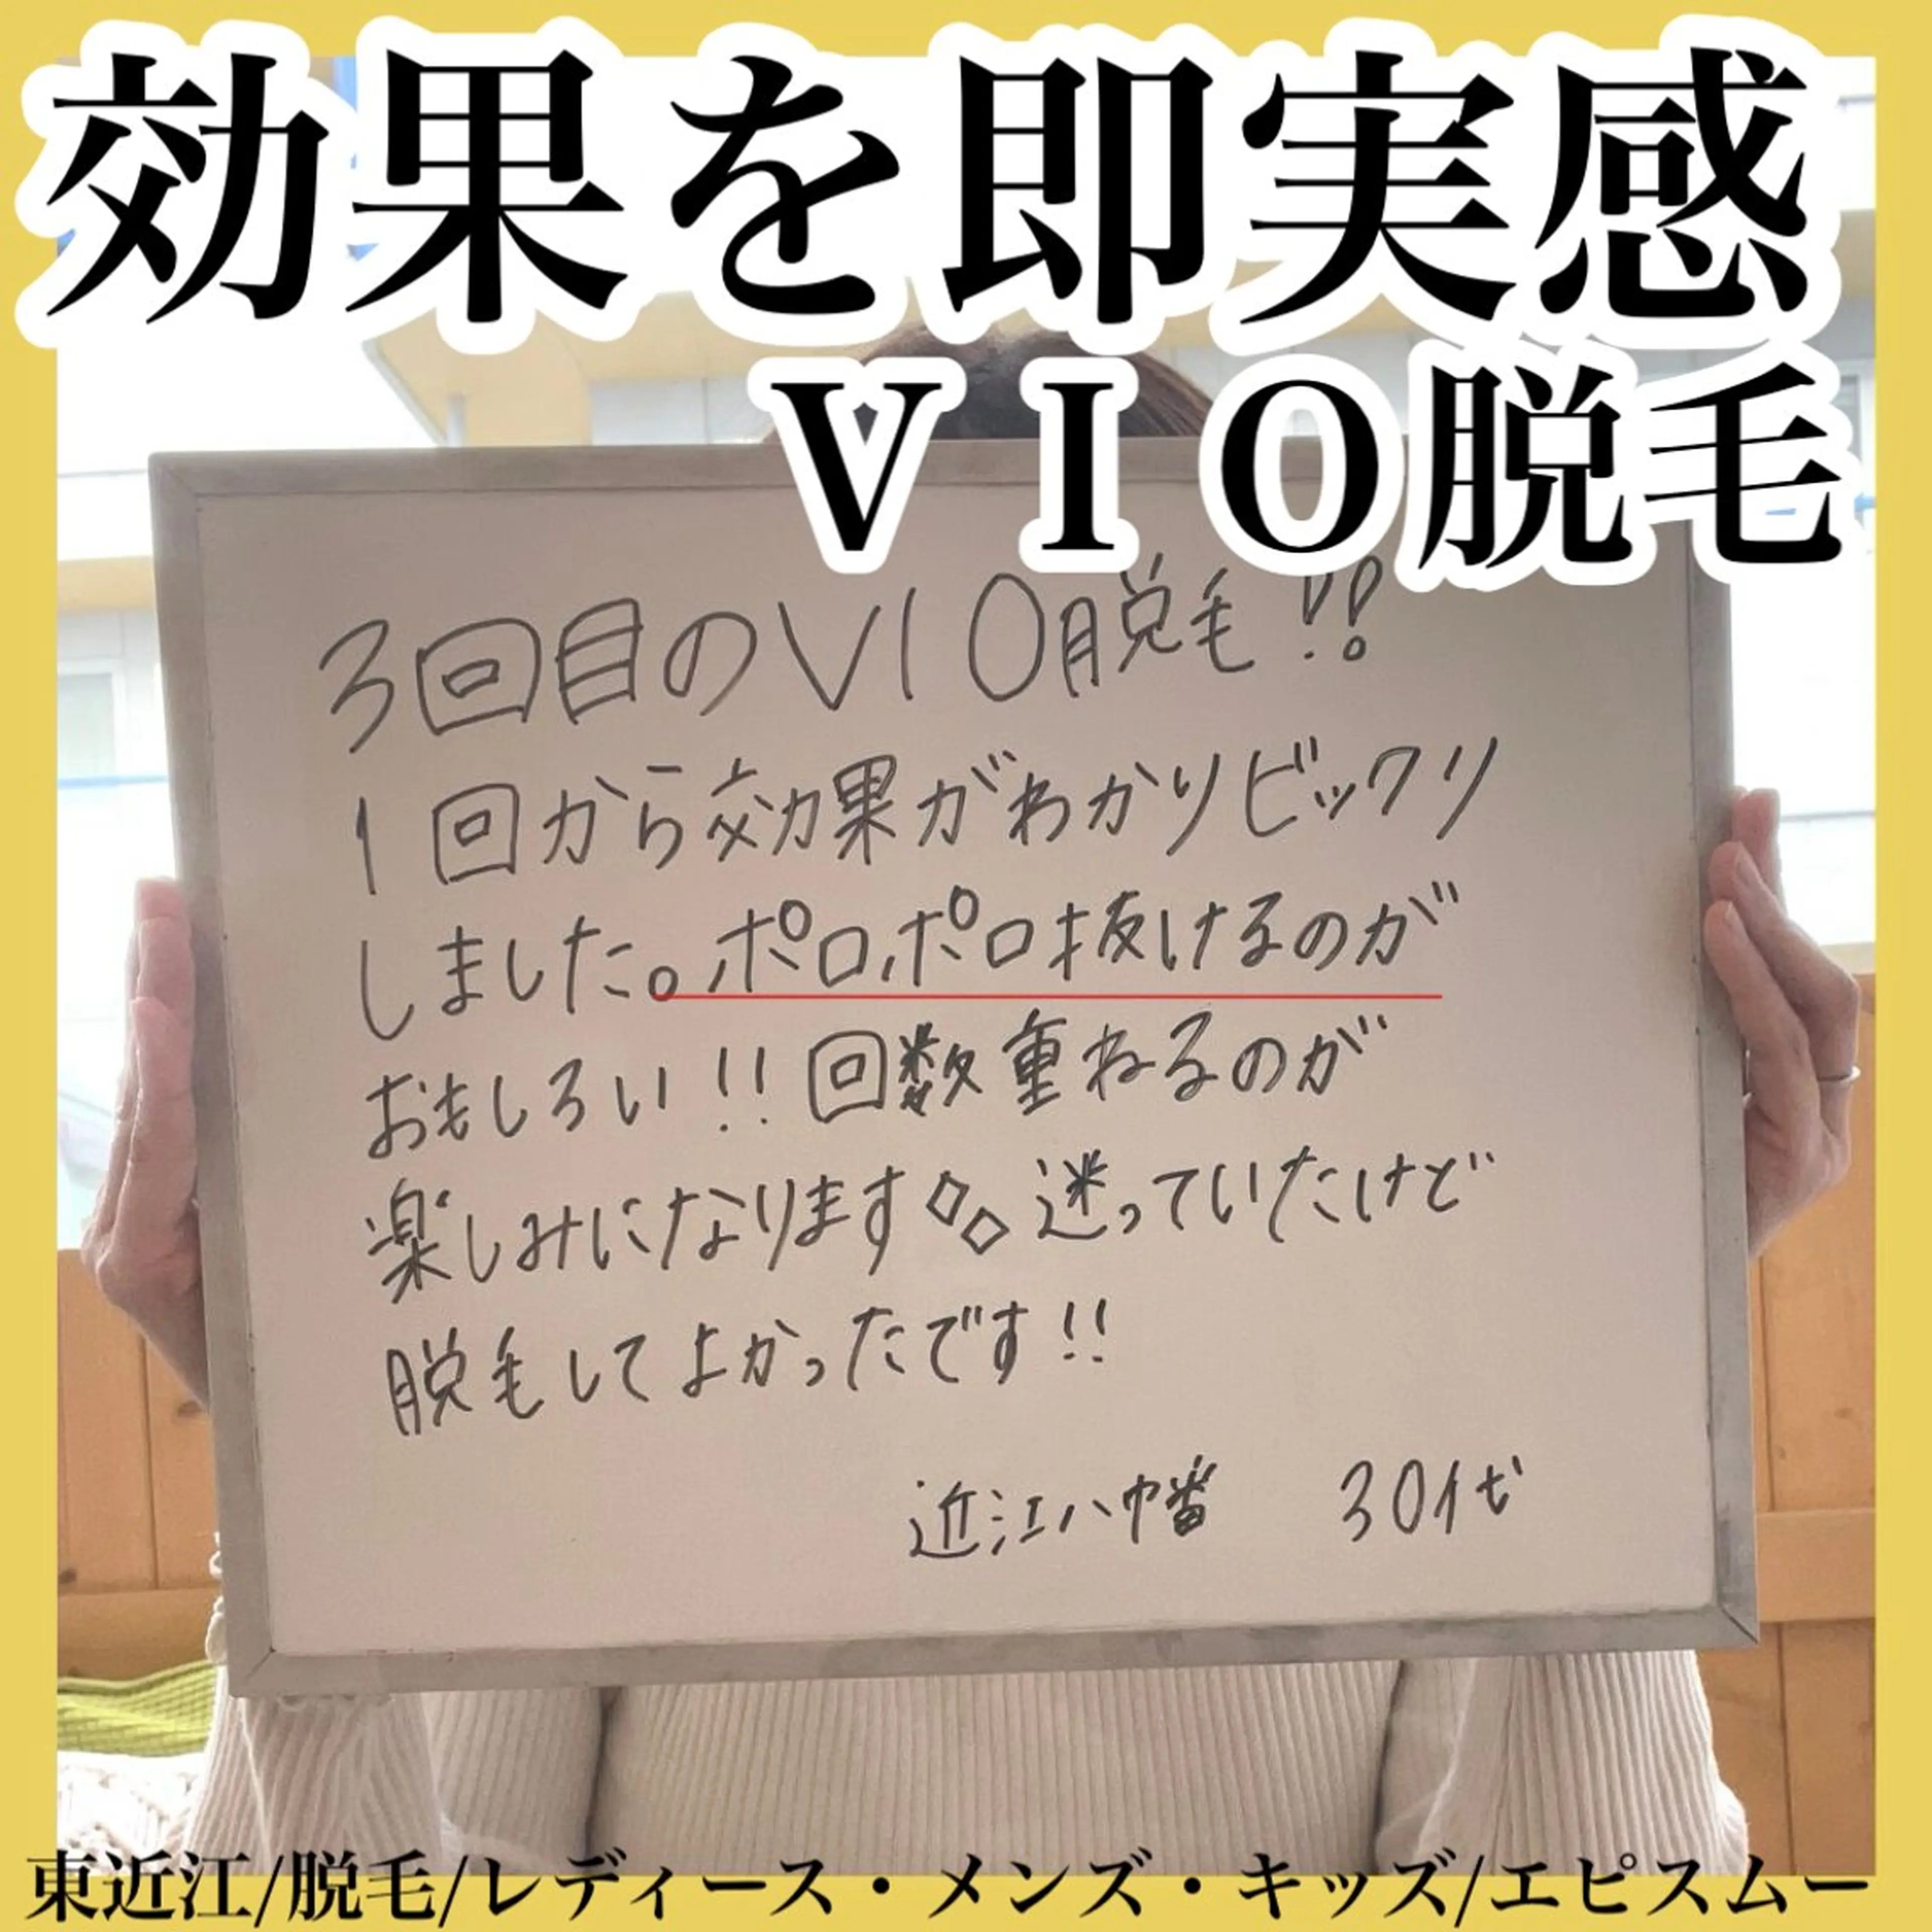 効果を即実感
VIO脱毛
3回目のVIO脱毛!!
1回から効果がわかりビックリ
しました。ポロポロ抜けるのが
おもしろい!!回数重ねるのが
楽しみになります 迷っていたけど
脱毛してよかったです!!
近江八幡 30代
東近江/脱毛/レディース・メンズ・キッズ/エピスムー